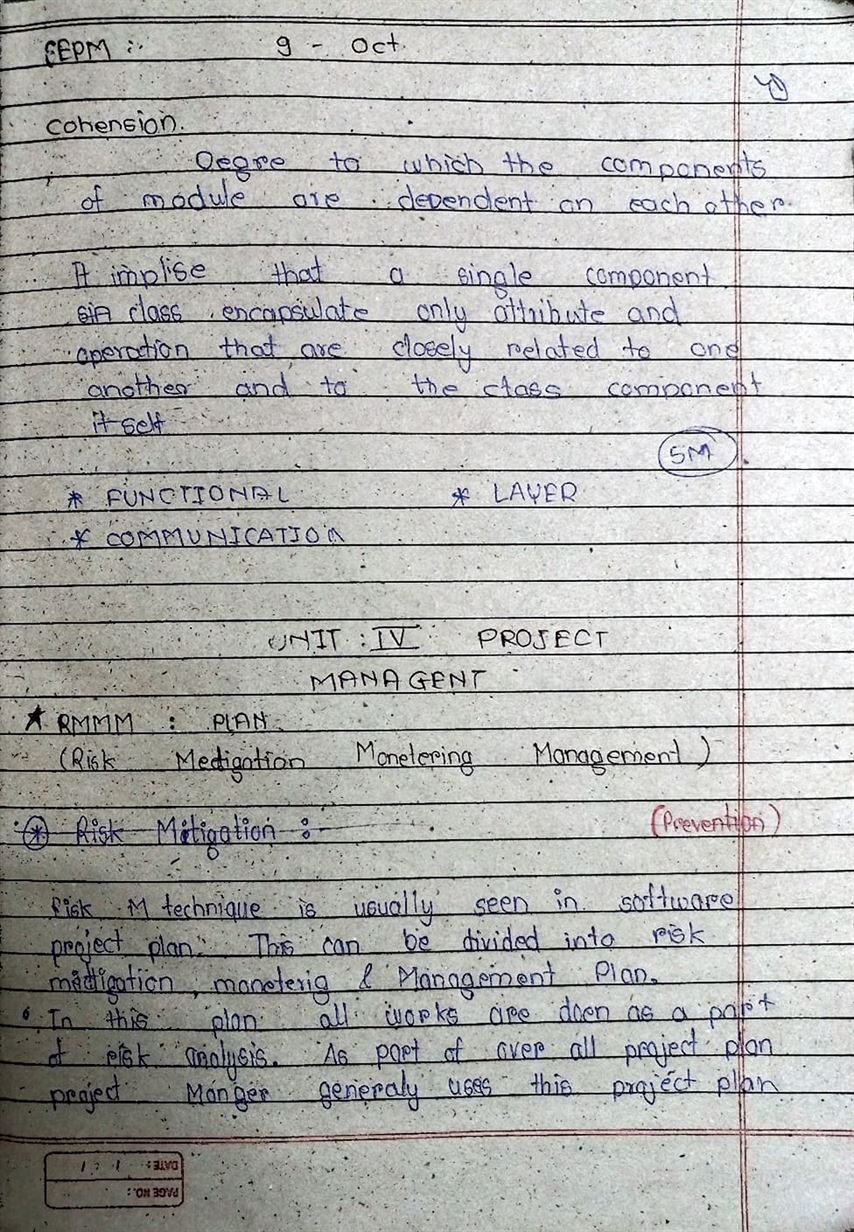 SEPM :- 9 - Oct.
Cohension.
Degre to which the components
of module are dependent on each other.
It implise that a single component
class encapsulate only attribute and
operation that are closely related to one
another and to the class component
itself
5M
* FUNCTIONAL * LAYER
* COMMUNICATION
UNIT : IV PROJECT
MANAGENT
★ RMMM : PLAN.
(Risk Medigation Monetering Management)
* Risk Mitigation :- (Prevention)
Risk M technique is usually seen in software
project plan. This can be divided into risk
madtigation, moneterig & Management Plan.
• In this plan all works are doen as a part
of risk analysis. As part of over all project plan
project Manger generaly uses this project plan
DATE:
PAGE NO.: